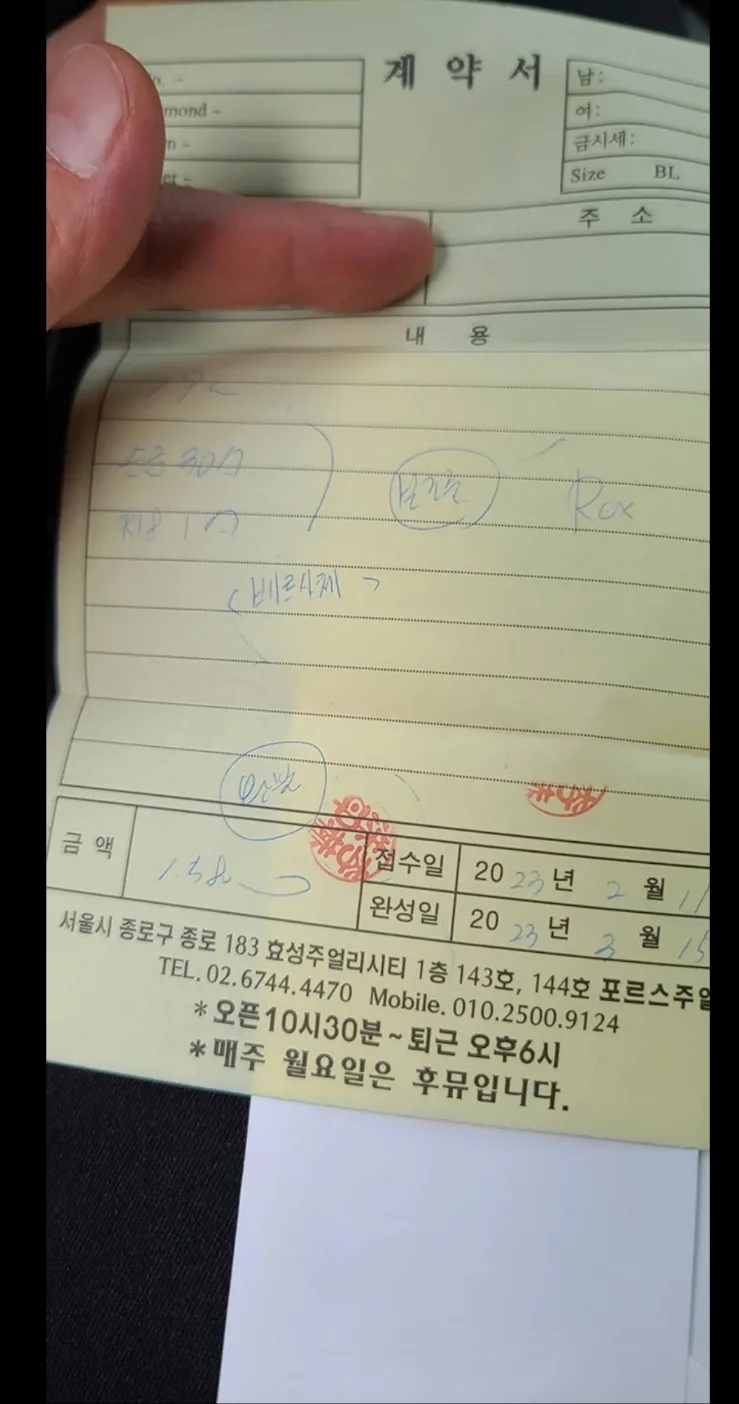 계 약 서
mond -
남:
여:
금시세:
Size BL
주 소
내 용
Rox
베르사체
금 액
접수일 2023년 2월 11
완성일 2023년 3월 15
서울시 종로구 종로 183 효성주얼리시티 1층 143호, 144호 포르스주얼
TEL. 02.6744.4470 Mobile. 010.2500.9124
*오픈10시30분~퇴근 오후6시
*매주 월요일은 후뮤입니다.